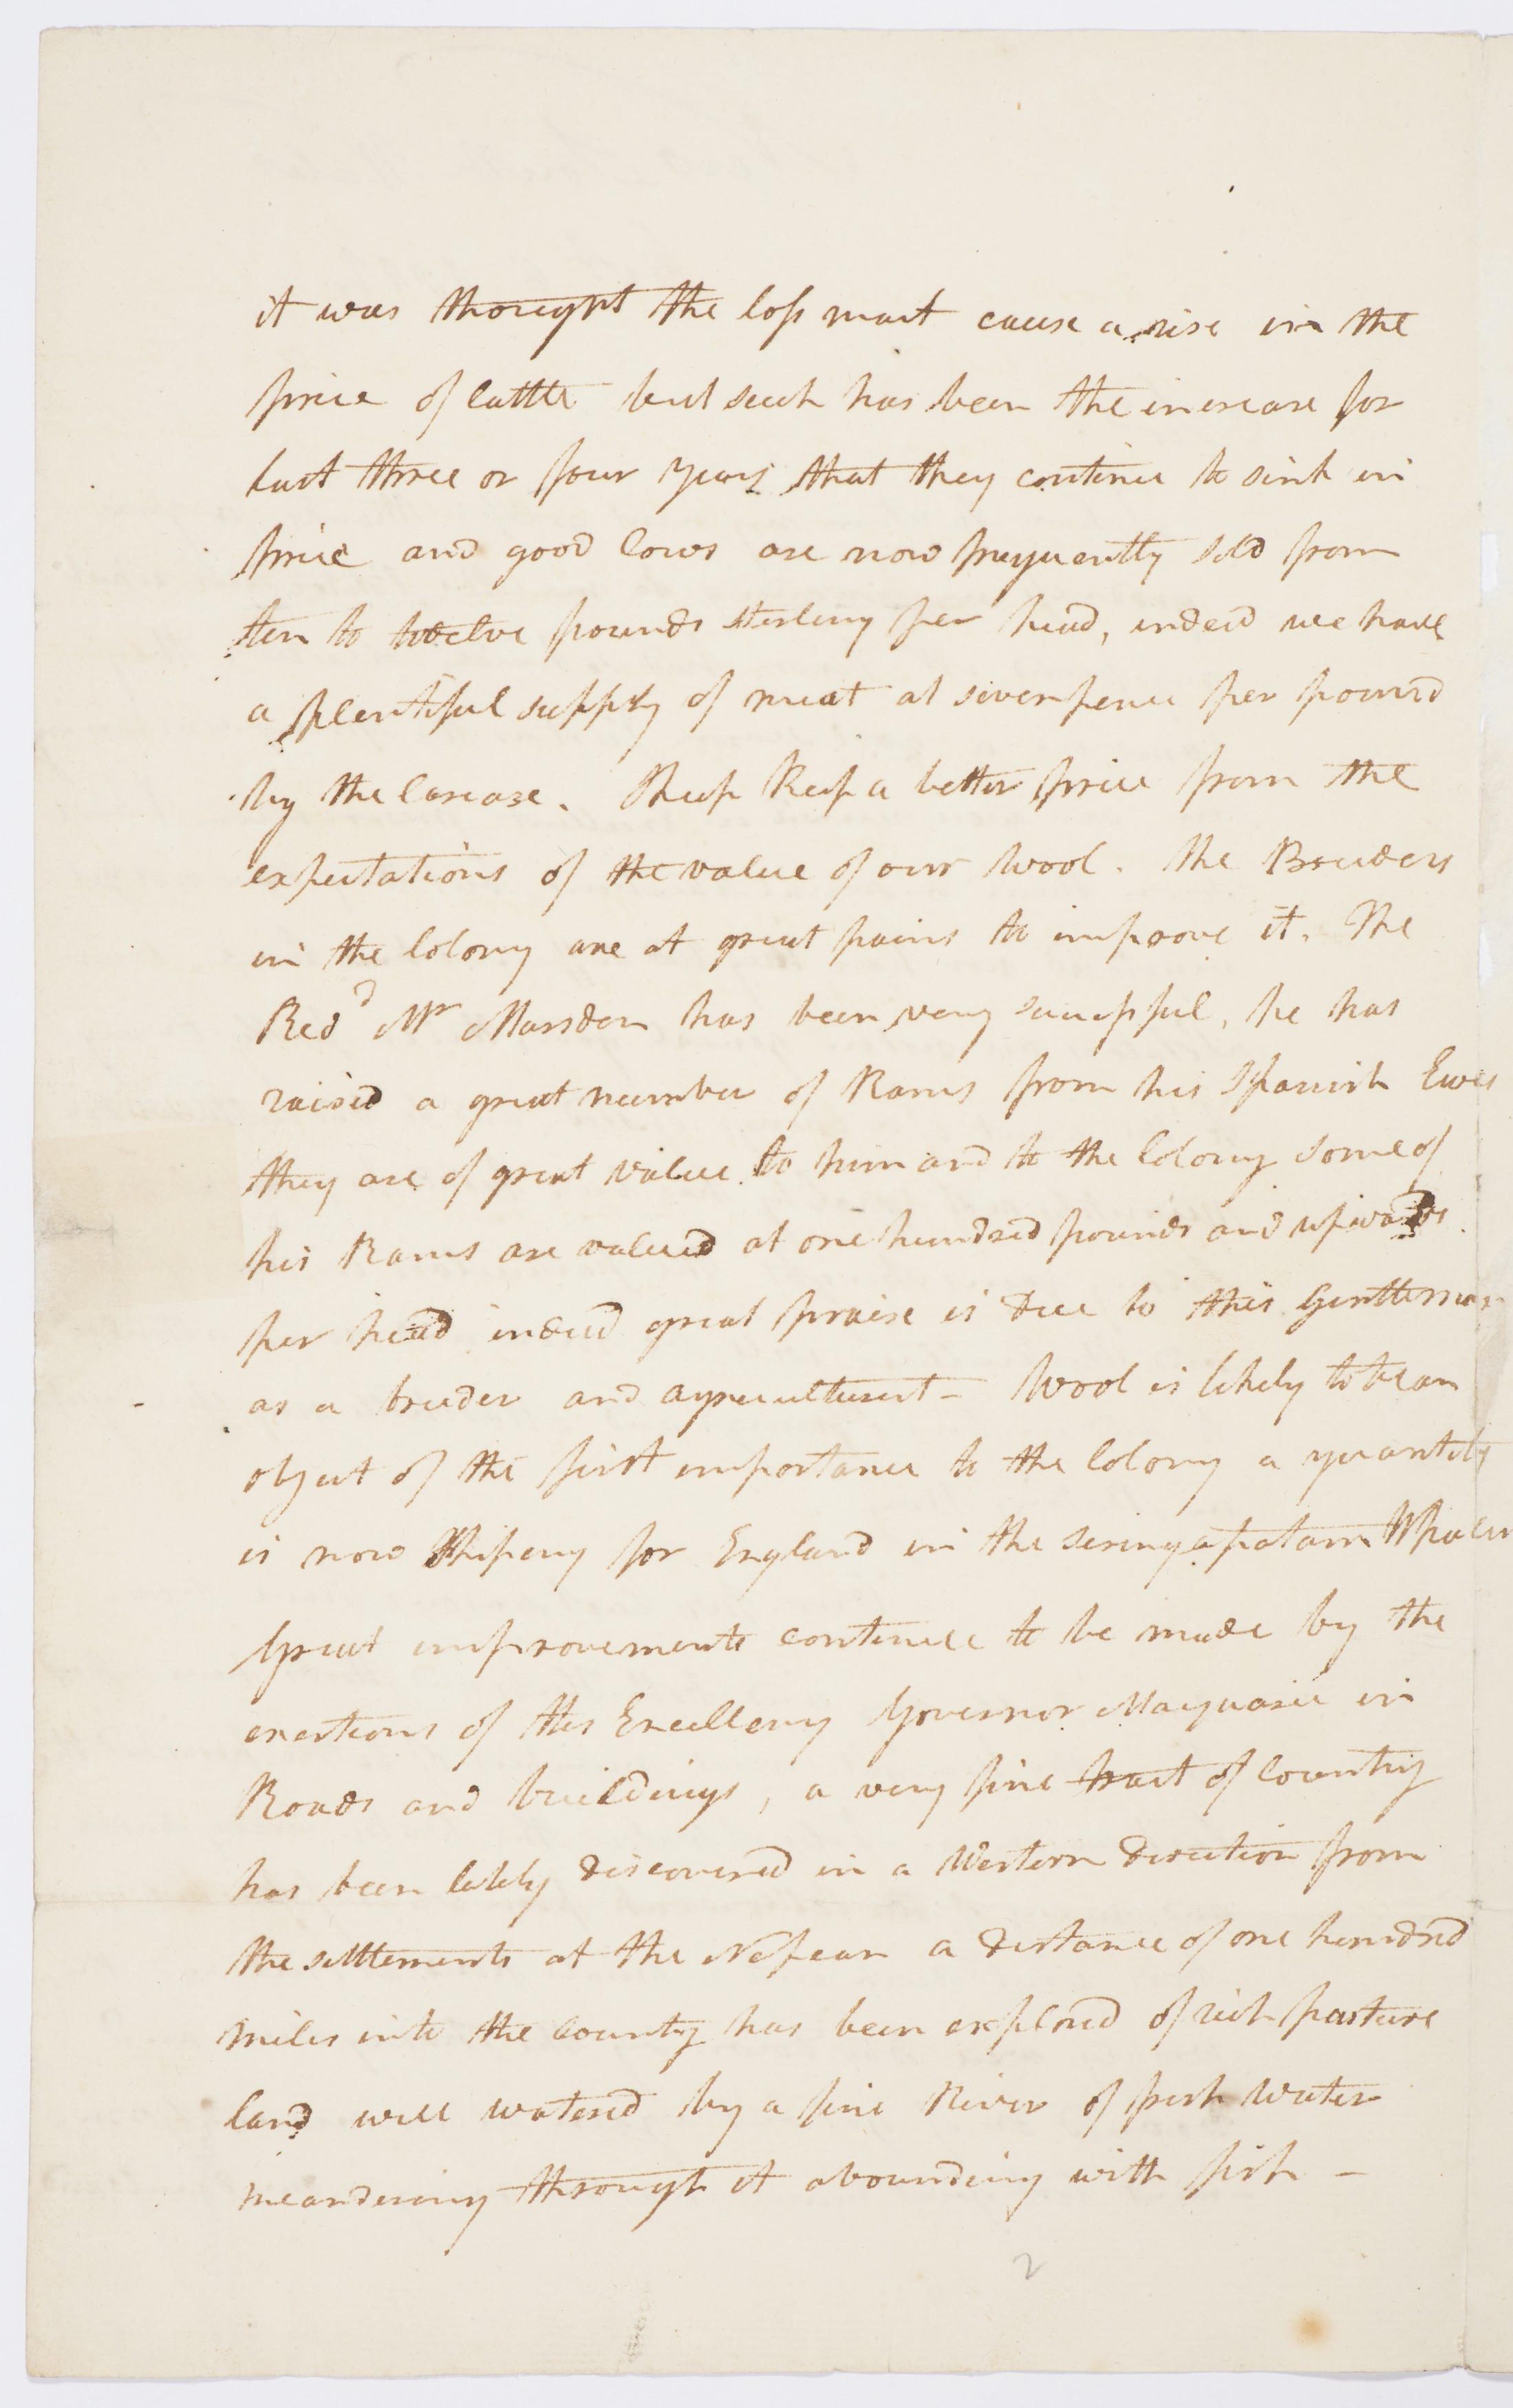 it was thought the loss must cause a rise in the
price of Cattle but such has been the increase for
last three or four years that they continue to sink in
price and good Cows are now frequently sold from
ten to twelve pounds sterling per head, indeed we have
a plentiful supply of meat at sevenpence per pound
by the Carcase. Sheep keep a better price from the
expectations of the value of our Wool. The Breeders
in the Colony are at great pains to improve it. The
Revd Mr Marsden has been very successful, he has
raised a great number of Rams from his Spanish Ewes
they are of great value to him and to the Colony some of
his Rams are valued at one hundred pounds and upwards
per head indeed great praise is due to this Gentleman
as a breeder and agriculturist - Wool is likely to be an
object of the first importance to the Colony a quantity
is now Shiping for England in the Seringapatam Whaler
Great improvements continue to be made by the
exertions of His Excellency Governor Macquarie in
Roads and buildings, a very fine tract of Country
has been lately discovered in a Western direction from
the settlements at the Nepean a distance of one hundred
miles into the country has been explored of rich pasture
land well watered by a fine River of fresh water
meandering through it abounding with fish -
2